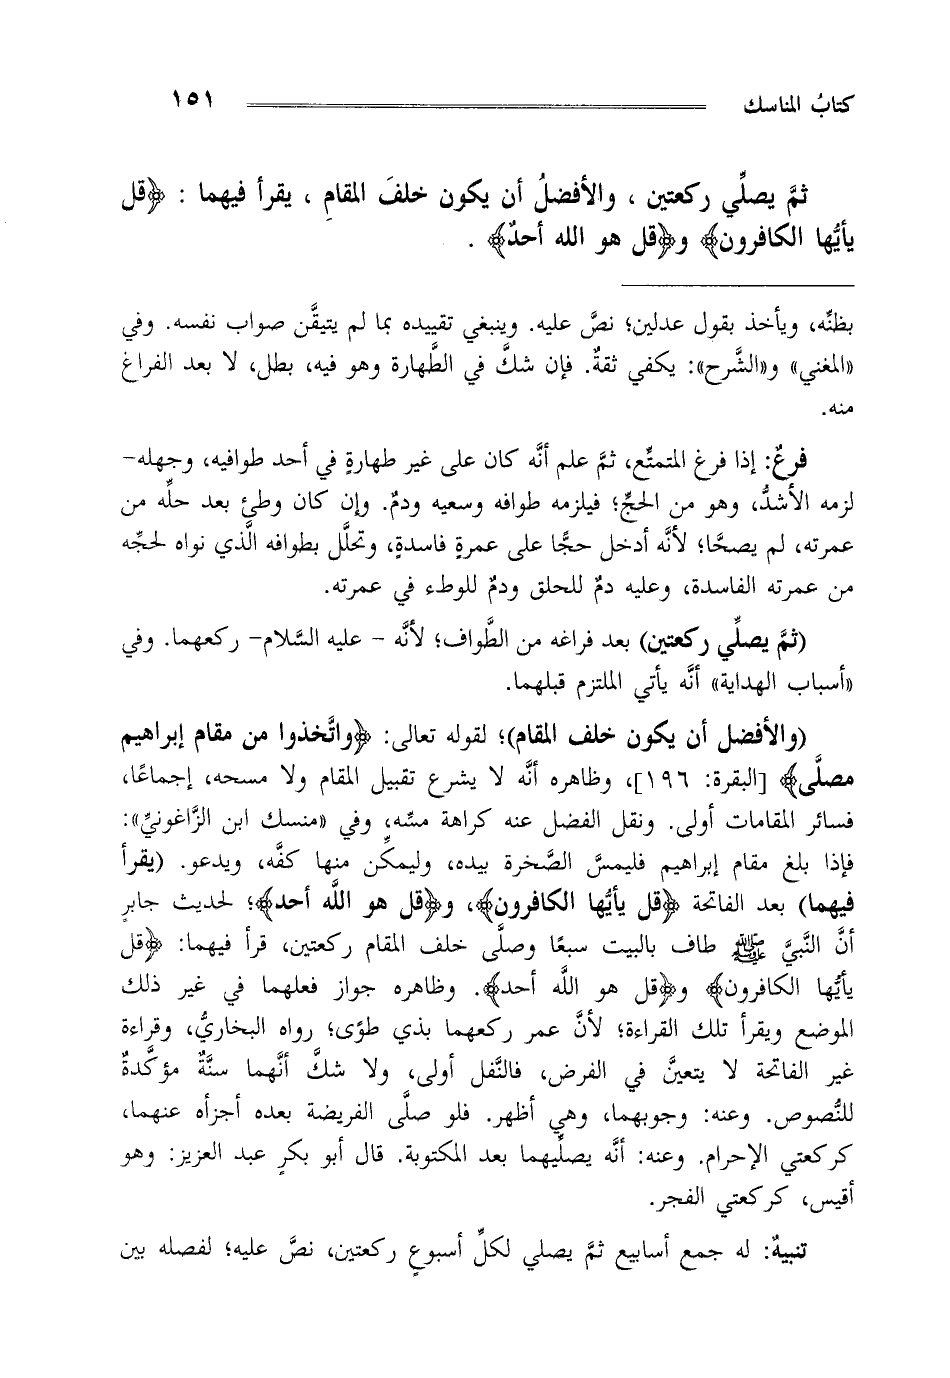 كتابُ المناسك ١٥١
ثمَّ يصلِّي ركعتين ، والأفضلُ أن يكون خلفَ المقامِ ، يقرأ فيهما : ﴿قل
يأيُّها الكافرون﴾ و﴿قل هو الله أحدٌ﴾ .
بظنِّه، ويأخذ بقول عدلين؛ نصَّ عليه. وينبغي تقييده بما لم يتيقَّن صواب نفسه. وفي
«المغني» و«الشَّرح»: يكفي ثقةٌ. فإن شكَّ في الطَّهارة وهو فيه، بطل، لا بعد الفراغ
منه.
فرعٌ: إذا فرغ المتمتِّع، ثمَّ علم أنَّه كان على غير طهارةٍ في أحد طوافيه، وجهله–
لزمه الأشدُّ، وهو من الحجِّ؛ فيلزمه طوافه وسعيه ودمٌ. وإن كان وطئ بعد حلِّه من
عمرته، لم يصحَّا؛ لأنَّه أدخل حجًّا على عمرةٍ فاسدةٍ، وتحلَّل بطوافه الَّذي نواه لحجِّه
من عمرته الفاسدة، وعليه دمٌ للحلق ودمٌ للوطء في عمرته.
(ثمَّ يصلِّي ركعتين) بعد فراغه من الطَّواف؛ لأنَّه – عليه السَّلام– ركعهما. وفي
«أسباب الهداية» أنَّه يأتي الملتزم قبلهما.
(والأفضل أن يكون خلف المقام)؛ لقوله تعالى: ﴿واتَّخذوا من مقام إبراهيم
مصلَّى﴾ [البقرة: ١٩٦]، وظاهره أنَّه لا يشرع تقبيل المقام ولا مسحه، إجماعًا،
فسائر المقامات أولى. ونقل الفضل عنه كراهة مسِّه، وفي «منسك ابن الزَّاغونيِّ»:
فإذا بلغ مقام إبراهيم فليمسَّ الصَّخرة بيده، وليمكِّن منها كفَّه، ويدعو. (يقرأ
فيهما) بعد الفاتحة ﴿قل يأيُّها الكافرون﴾، و﴿قل هو اللَّه أحد﴾؛ لحديث جابرٍ
أنَّ النَّبيَّ ﷺ طاف بالبيت سبعًا وصلَّى خلف المقام ركعتين، قرأ فيهما: ﴿قل
يأيُّها الكافرون﴾ و﴿قل هو اللَّه أحد﴾. وظاهره جواز فعلهما في غير ذلك
الموضع ويقرأ تلك القراءة؛ لأنَّ عمر ركعهما بذي طوًى؛ رواه البخاريُّ، وقراءة
غير الفاتحة لا يتعينَّ في الفرض، فالنَّفل أولى، ولا شكَّ أنَّهما سنَّةٌ مؤكَّدةٌ
للنُّصوص. وعنه: وجوبهما، وهي أظهر. فلو صلَّى الفريضة بعده أجزأه عنهما،
كركعتي الإحرام. وعنه: أنَّه يصلِّيهما بعد المكتوبة. قال أبو بكرٍ عبد العزيز: وهو
أقيس، كركعتي الفجر.
تنبيهٌ: له جمع أسابيع ثمَّ يصلي لكلِّ أسبوعٍ ركعتين، نصَّ عليه؛ لفصله بين